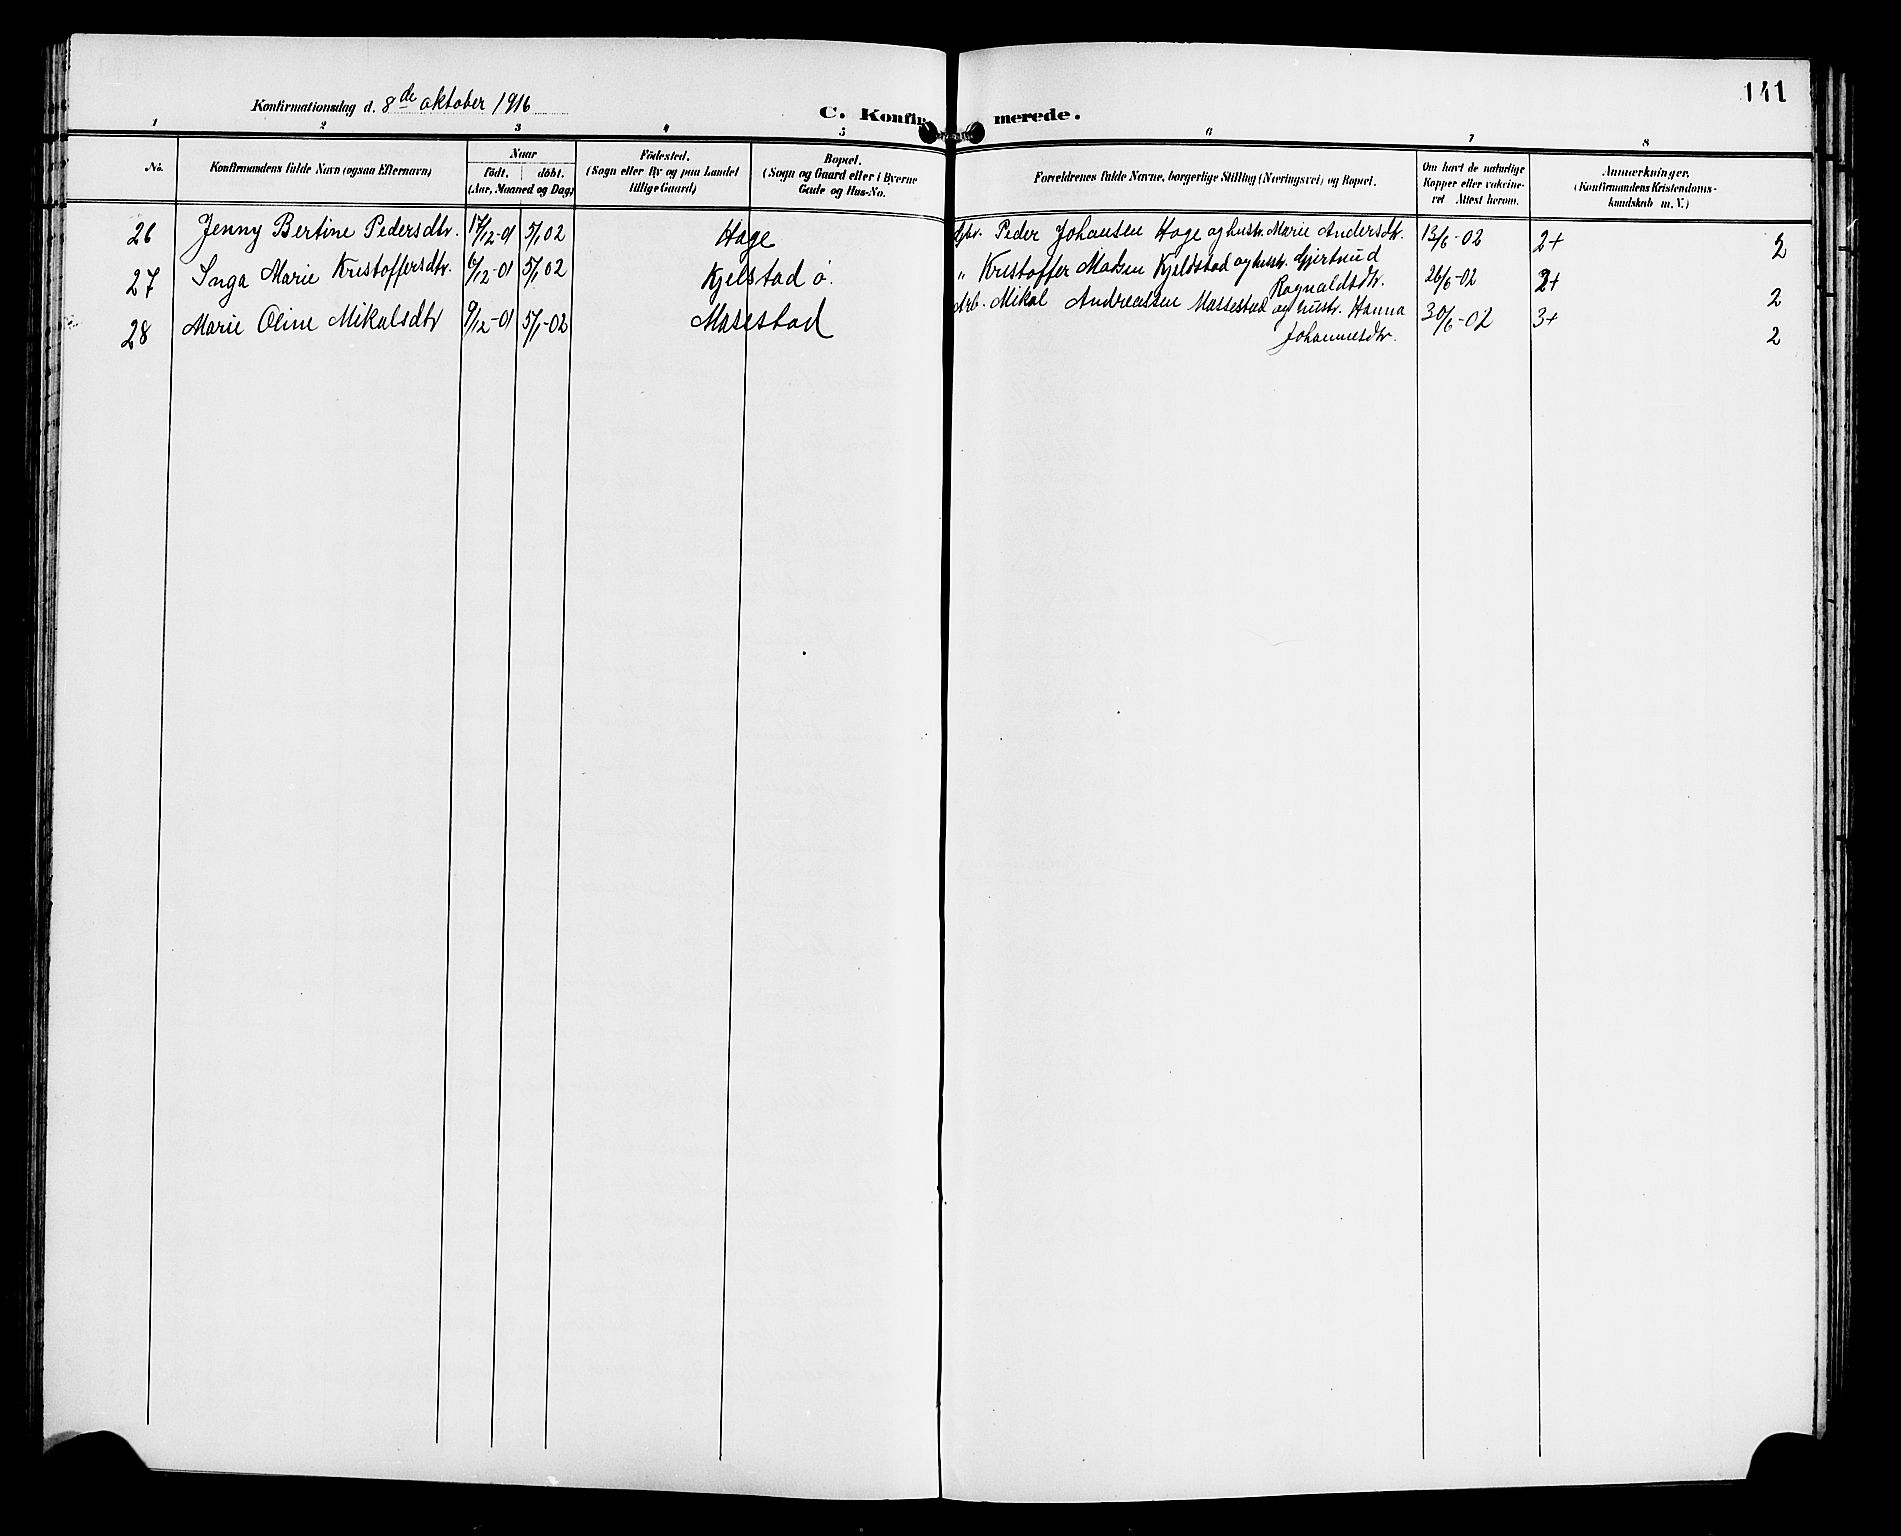 141
Konfirmationsdag d. 8de oktober 1916
C. Konfirmerede.
1 2 3 4 5 6 7 8
No.
Konfirmandens fulde Navn (ogsaa Efternavn)
Naar
født. døbt.
(Aar, Maaned og Dag)
Fødested.
(Sogn eller By og paa Landet
tillige Gaard)
Bopæl.
(Sogn og Gaard eller i Byerne
Gade og Hus-No.
Forældrenes fulde Navne, borgerlige Stilling (Næringsvei) og Bopæl.
Om havt de naturlige
Kopper eller vakcine-
ret Attest herom.
Anmærkninger.
(Konfirmandens Kristendoms-
kundskab m. V.)
26 Jenny Bertine Pedersdtr. 17/12-01 5/1 02 Hage Gbr. Peder Johansen Hage og hustr. Marie Andersdtr. 13/6-02 2+ 2
27 Inga Marie Kristoffersdtr. 6/12-01 5/1 02 Kjelstad ø. " Kristoffer Matsen Kjeldstad og hustr. Gjertrud
Ragnaldsdtr. 26/6-02 2+ 2
28 Marie Oline Mikalsdtr 9/12-01 5/1-02 Masestad Arb. Mikal Andreassen Massestad og hustr. Hanna
Johannesdtr. 30/6-02 3+ 2